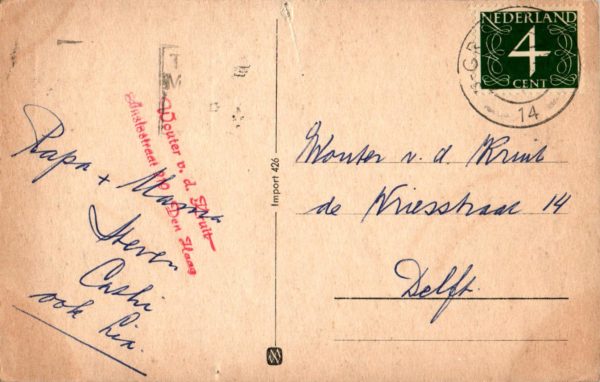 NEDERLAND
4
CENT
14
T
M
Wouter v. d. Kruit
Den Haag
Papa + Mama
Steven
Cashi
ook Lia.
Import 426
Wouter v. d. Kruit
de Vriesstraat 14
Delft.